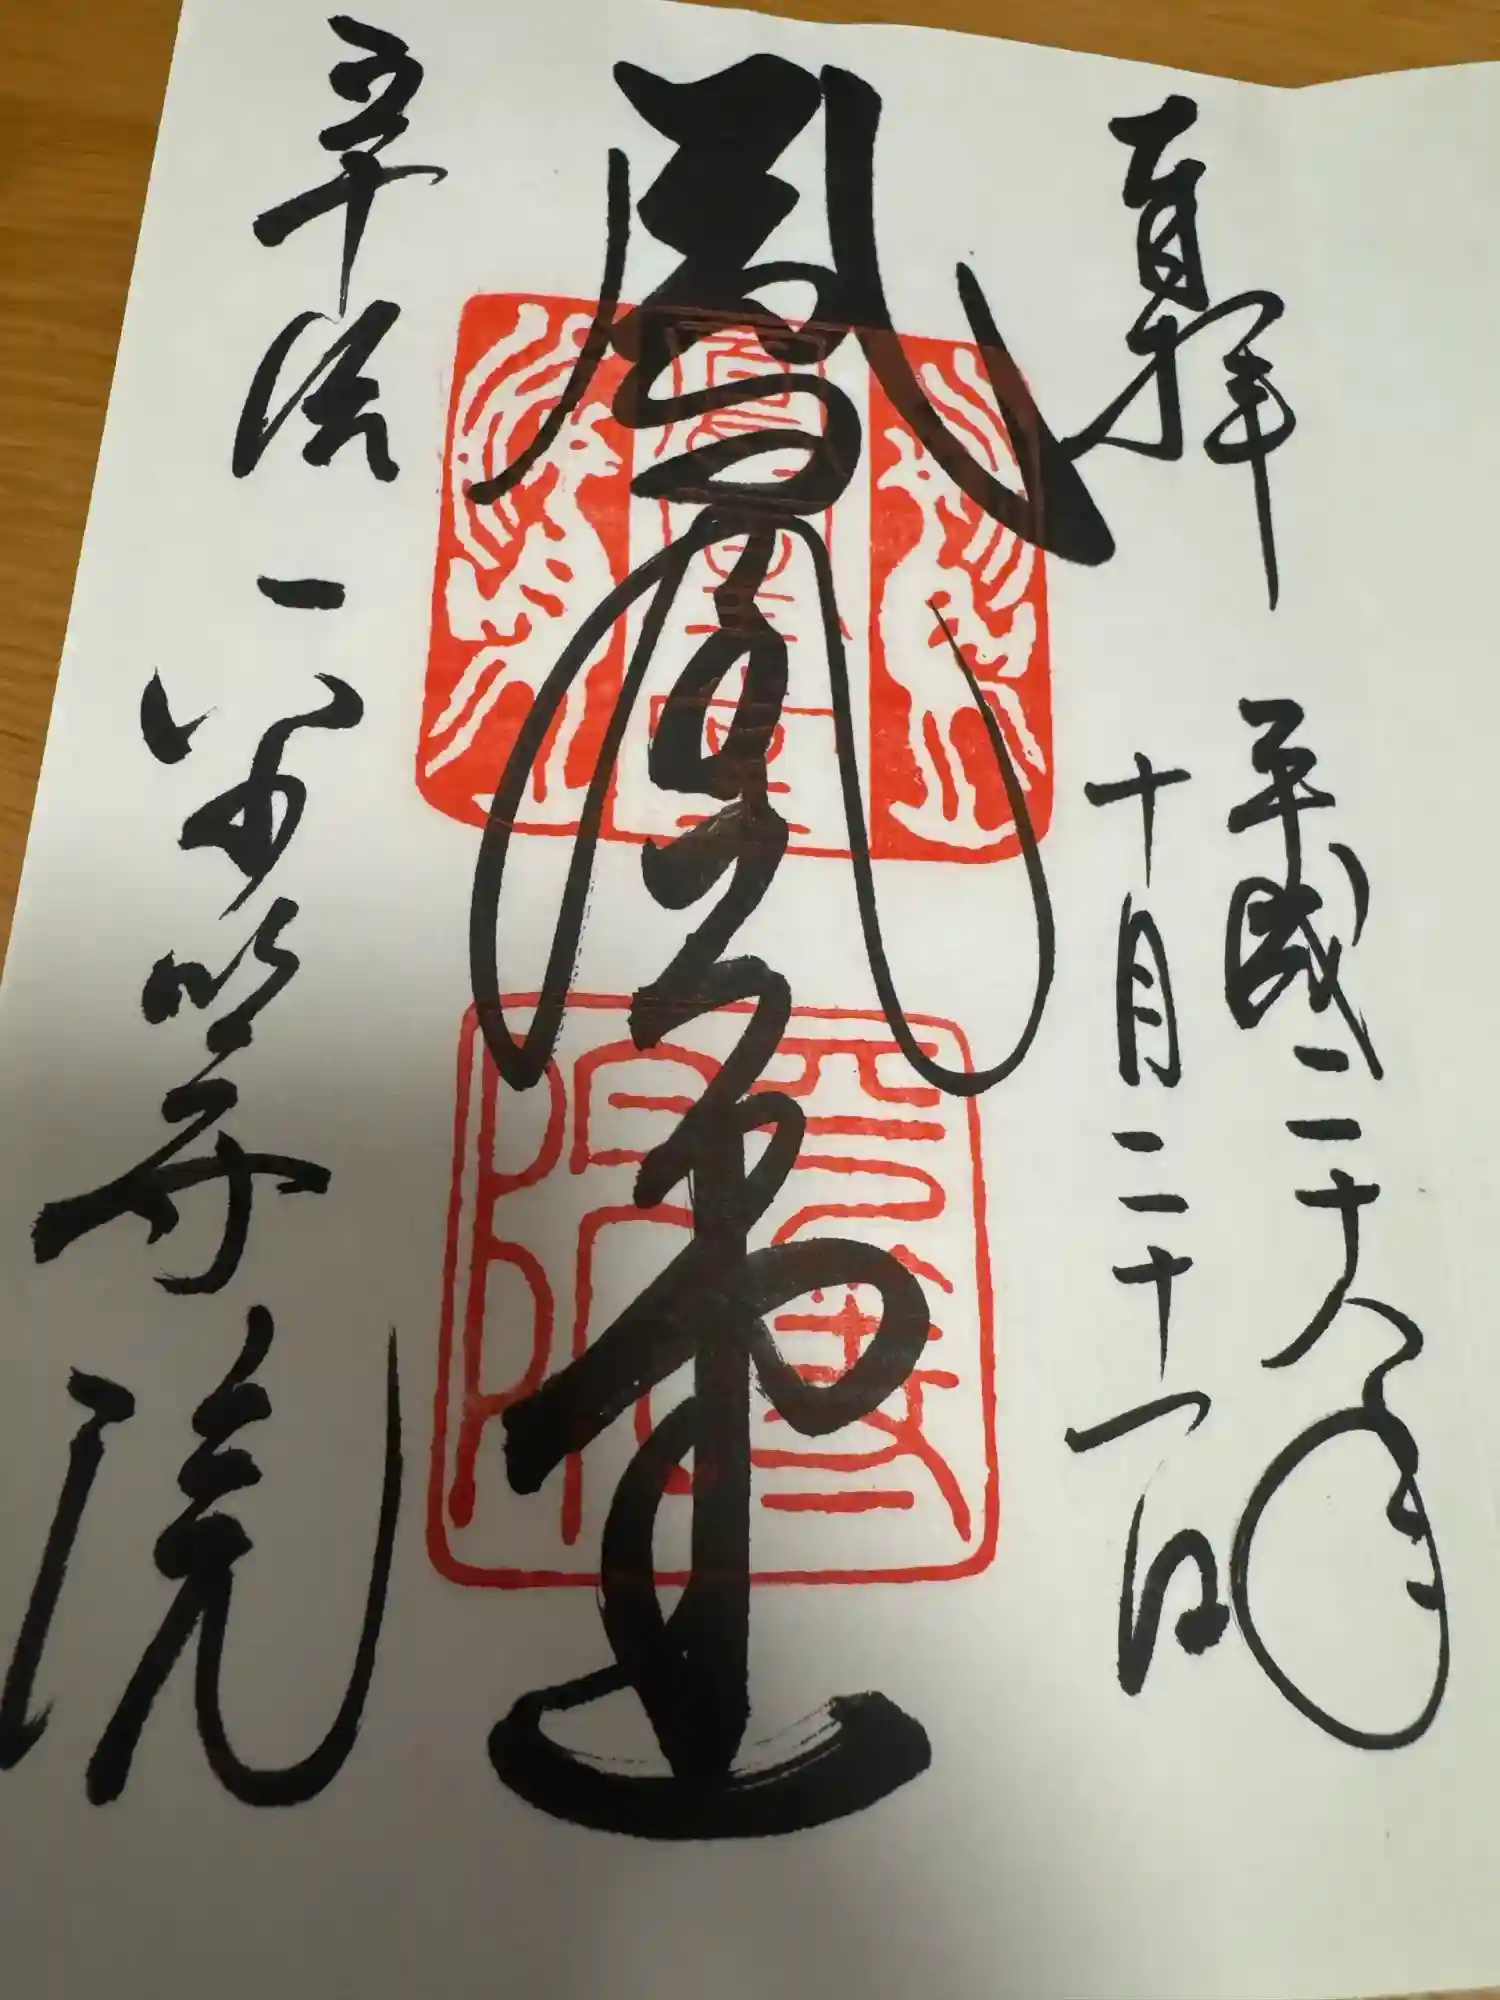 奉拝
平成二十八年
十月二十一日
鳳凰堂
宇治
平等院